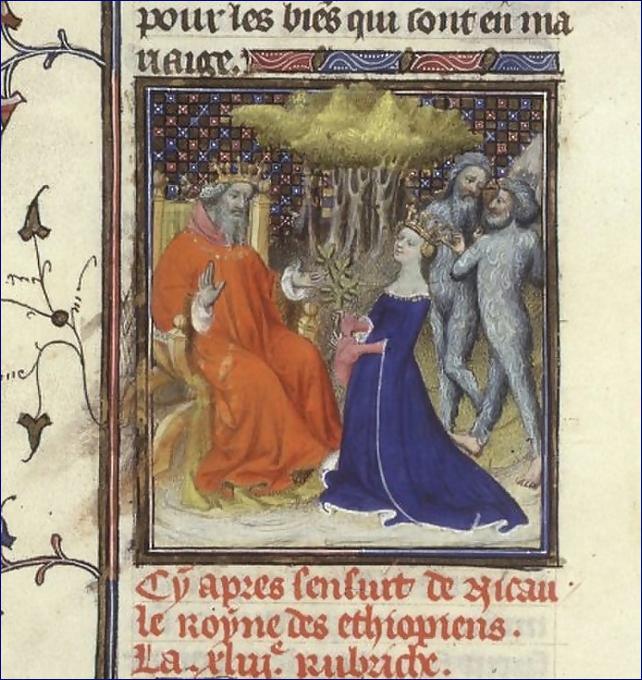 pour les biẽs qui sont en ma
riaige.
Cy apres sensuit de Nicau
le royne des ethiopiens.
La .xliiiᵉ. rubriche.